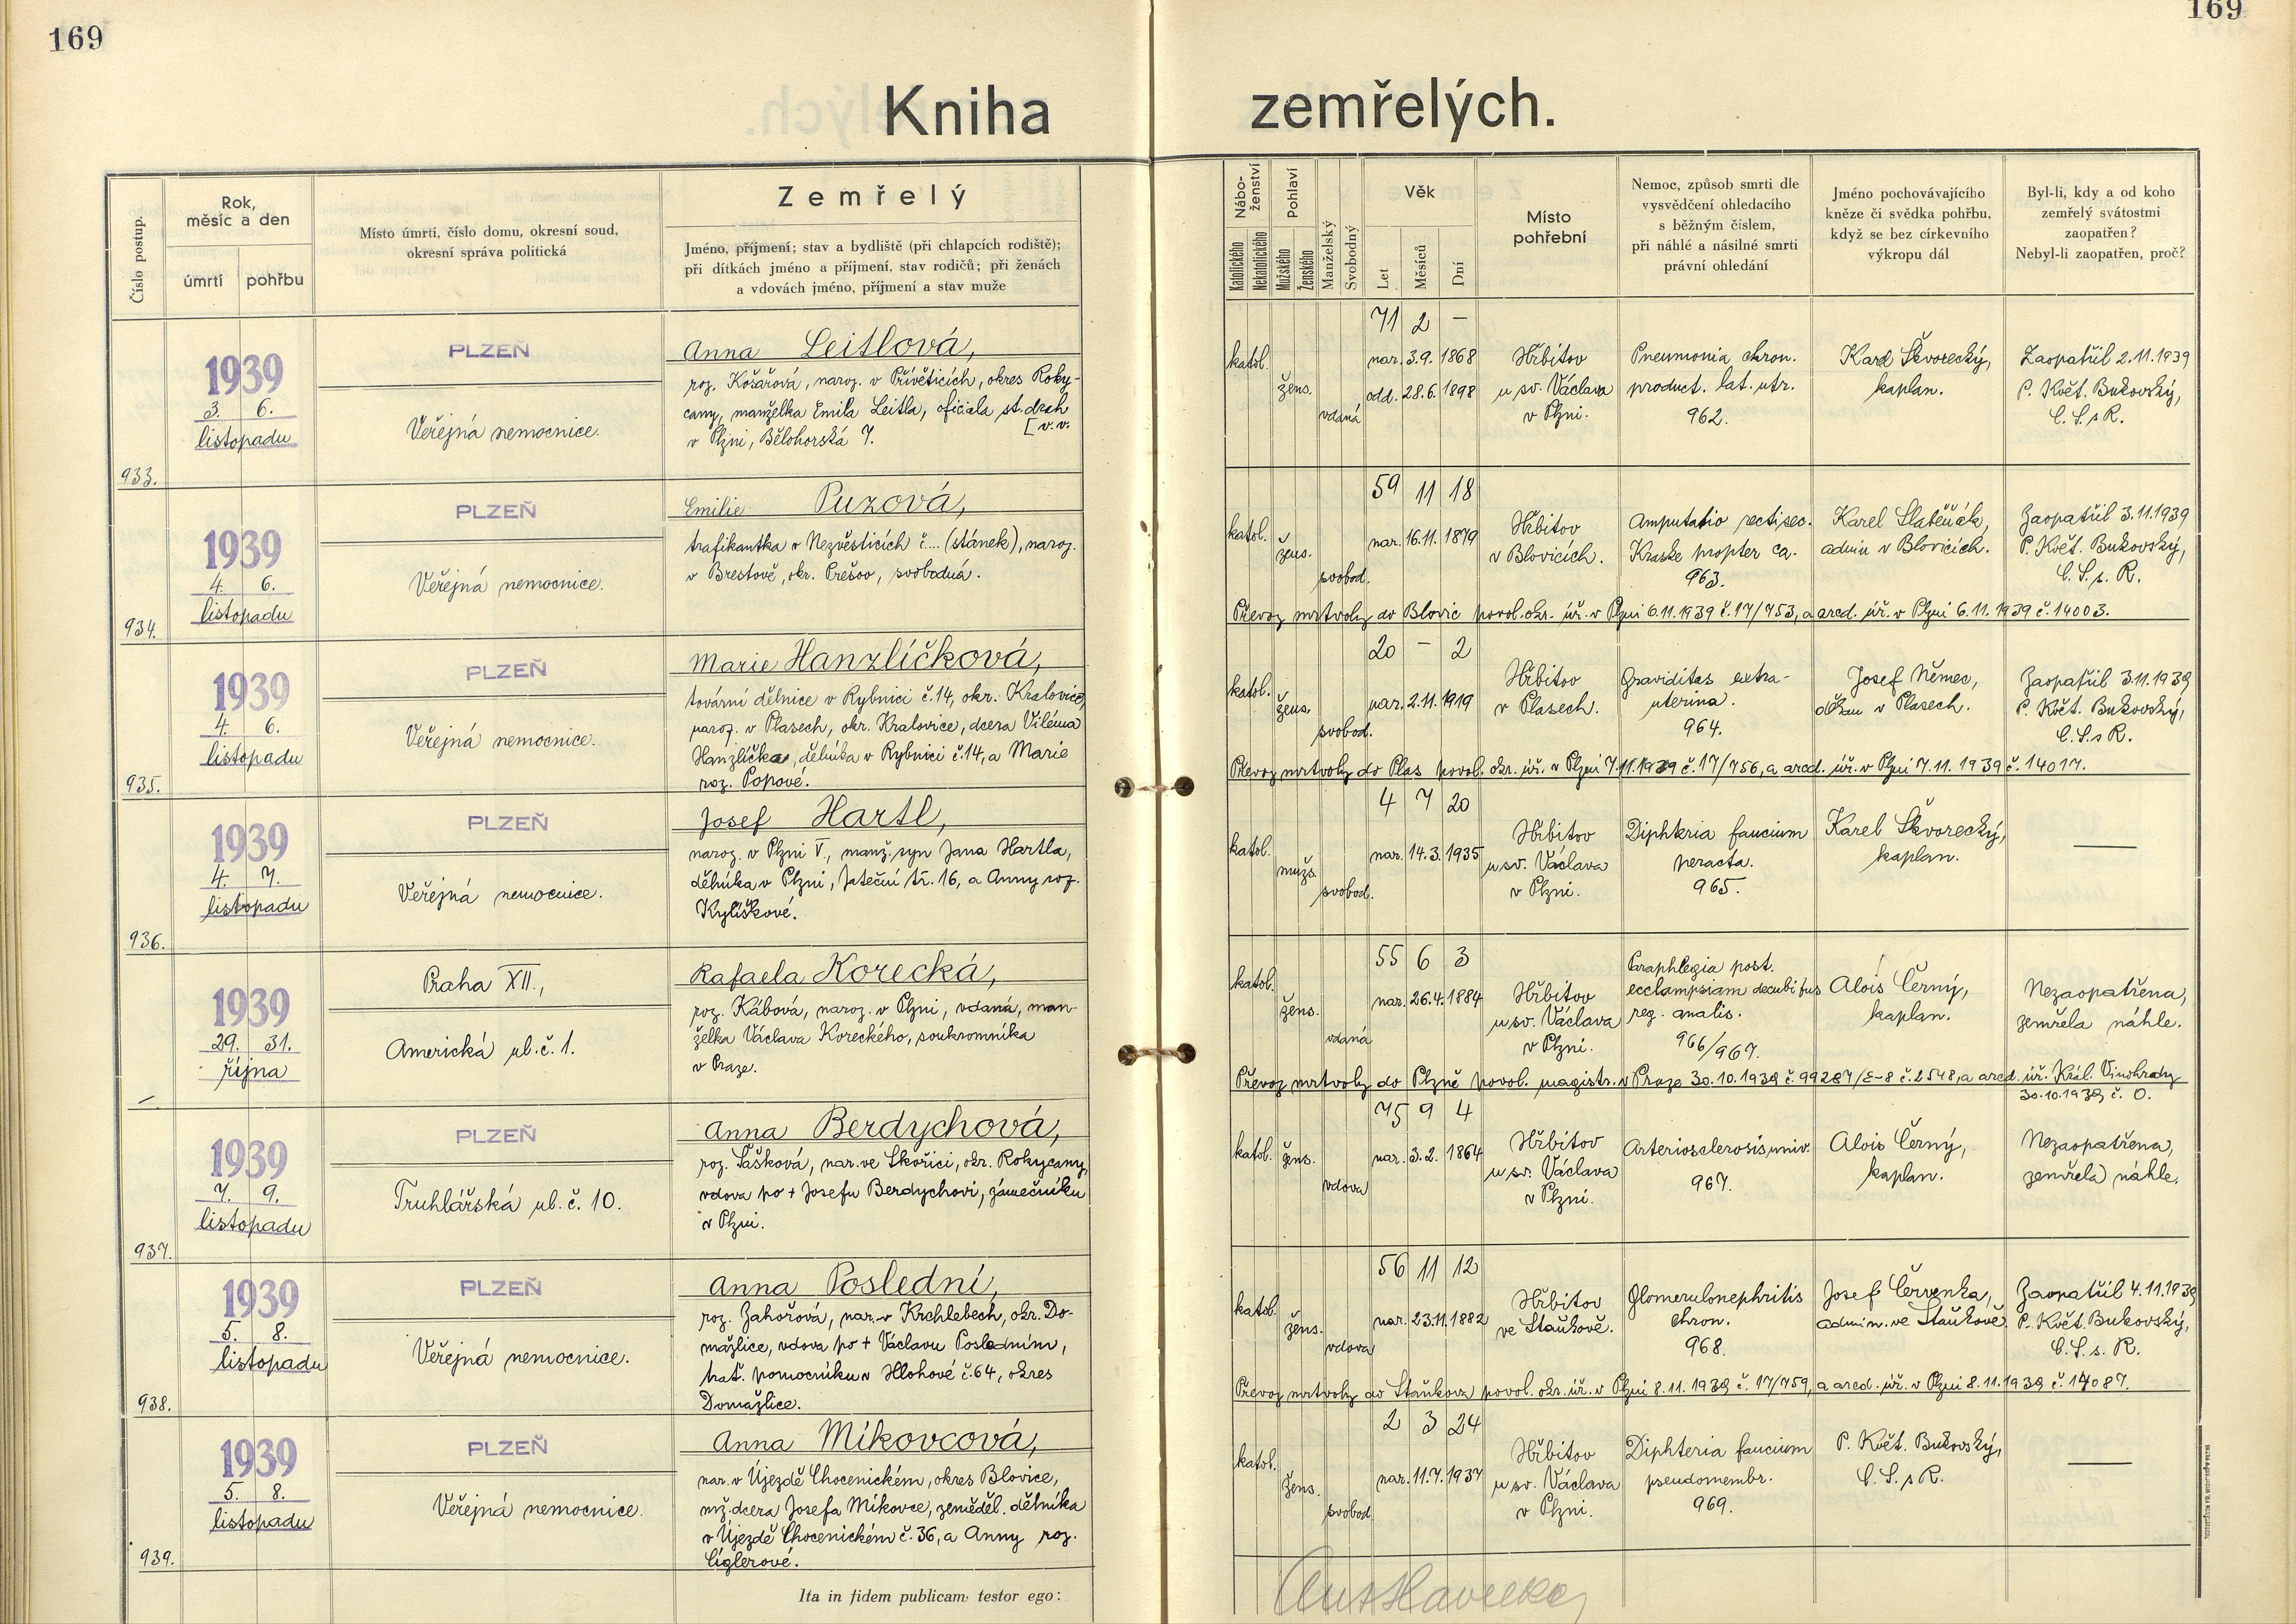 169
169
Kniha zemřelých.
Číslo postup.
Rok,
měsíc a den
úmrtí pohřbu
Místo úmrtí, číslo domu, okresní soud,
okresní správa politická
Zemřelý
Jméno, příjmení; stav a bydliště (při chlapcích rodiště);
při dítkách jméno a příjmení, stav rodičů; při ženách
a vdovách jméno, příjmení a stav muže
Nábo-
ženství
Katolického
Nekatolického
Pohlaví
Mužského
Ženského
Manželský
Svobodný
Věk
Let
Měsíců
Dní
Místo
pohřební
Nemoc, způsob smrti dle
vysvědčení ohledacího
s běžným číslem,
při náhlé a násilné smrti
právní ohledání
Jméno pochovávajícího
kněze či svědka pohřbu,
když se bez církevního
výkropu dál
Byl-li, kdy a od koho
zemřelý svátostmi
zaopatřen?
Nebyl-li zaopatřen, proč?
933.
1939
3. 6.
listopadu
PLZEŇ
Veřejná nemocnice.
Anna Leitlová,
roz. Košařová, naroz. v Přívěticích, okres Roky-
cany, manželka Emila Leitla, oficiala st. drah
[v.v.
v Plzni, Bělohorská 7.
71 2 –
katol.
žens.
vdaná
nar. 3.9. 1868
odd. 28.6. 1898
Hřbitov
u sv. Václava
v Plzni.
Pneumonia chron.
product. lat. utr.
962.
Karel Škvorecký,
kaplan.
Zaopatřil 2.11.1939
P. Květ. Bukovský,
C. S. s R.
934.
1939
4. 6.
listopadu
PLZEŇ
Veřejná nemocnice.
Emilie Puzová,
trafikantka v Nezvěsticích č.... (stánek), naroz.
v Brestově, okr. Prešov, svobodná.
59 11 18
katol.
žens.
svobod.
nar. 16.11. 1879
Hřbitov
v Blovicích.
Amputatio recti sec.
Kraske propter ca.
963.
Karel
admin v Blovicích.
Zaopatřil 3.11.1939
P. Květ. Bukovský,
C. S. s. R.
Převoz mrtvoly do Blovic povol. okr. úř. v Plzni 6.11.1939 č. 17/753, a arcd. úř. v Plzni 6.11.1939 č. 14003.
935.
1939
4. 6.
listopadu
PLZEŇ
Veřejná nemocnice.
Marie Hanzlíčková,
tovární dělnice v Rybnici č. 14, okr. Kralovice,
naroz. v Plasech, okr. Kralovice, dcera Viléma
Hanzlíčka, dělníka v Rybnici č. 14, a Marie
roz. Popové.
20 – 2
katol.
žens.
svobod.
nar. 2.11. 1919
Hřbitov
v Plasech.
Graviditas extra-
uterina.
964.
Josef Němec,
děkan v Plasech.
Zaopatřil 3.11.1939
P. Květ. Bukovský,
C. S. s R.
Převoz mrtvoly do Plas povol. okr. úř. v Plzni 7.11.1939 č. 17/756, a arcd. úř. v Plzni 7.11.1939 č. 14017.
936.
1939
4. 7.
listopadu
PLZEŇ
Veřejná nemocnice.
Josef Hartl,
naroz. v Plzni V., manž. syn Jana Hartla,
dělníka v Plzni, Jateční tř. 16, a Anny roz.
Kylíškové.
4 7 20
katol.
mužs.
svobod.
nar. 14.3. 1935
Hřbitov
u sv. Václava
v Plzni.
Diphteria faucium
peracta.
965.
Karel Škvorecký,
kaplan.
—
–
1939
29. 31.
října
Praha XII.,
Americká ul. č. 1.
Rafaela Korecká,
roz. Kábová, naroz. v Plzni, vdaná, man-
želka Václava Koreckého, soukromníka
v Praze.
55 6 3
katol.
žens.
vdaná
nar. 26.4. 1884
Hřbitov
u sv. Václava
v Plzni.
Paraphlegia post.
ecclampsiam decubitus
reg. analis.
966/967.
Alois Černý,
kaplan.
Nezaopatřena,
zemřela náhle.
Převoz mrtvoly do Plzně povol. magistr. v Praze 30.10.1939 č. 99287/E-8 č. 2548, a arcd. úř. Král. Vinohrady
30.10.1939 č. 0.
937.
1939
7. 9.
listopadu
PLZEŇ
Truhlářská ul. č. 10.
Anna Berdychová,
roz. Šašková, nar. ve Skořici, okr. Rokycany,
vdova po + Josefu Berdychovi, zámečníku
v Plzni.
75 9 4
katol.
žens.
vdova
nar. 3.2. 1864
Hřbitov
u sv. Václava
v Plzni.
Arteriosclerosis univ.
967.
Alois Černý,
kaplan.
Nezaopatřena,
zemřela náhle.
938.
1939
5. 8.
listopadu
PLZEŇ
Veřejná nemocnice.
Anna Poslední,
roz. Zahořová, nar. v Krchlebech, okr. Do-
mažlice, vdova po + Václavu Posledním,
trať. pomocníku v Hlohové č. 64, okres
Domažlice.
56 11 12
katol.
žens.
vdova
nar. 23.11. 1882
Hřbitov
ve Staňkově.
Glomerulonephritis
chron.
968.
Josef Červenka,
admin. ve Staňkově.
Zaopatřil 4.11.1939
P. Květ. Bukovský,
C. S. s. R.
Převoz mrtvoly do Staňkova povol. okr. úř. v Plzni 8.11.1939 č. 17/759, a arcd. úř. v Plzni 8.11.1939 č. 14087.
939.
1939
5. 8.
listopadu
PLZEŇ
Veřejná nemocnice.
Anna Míkovcová,
nar. v Újezdě Chocenickém, okres Blovice,
mž. dcera Josefa Míkovce, zeměděl. dělníka
v Újezdě Chocenickém č. 36, a Anny roz.
Cíglerové.
2 3 24
katol.
žens.
svobod.
nar. 11.7. 1937
Hřbitov
u sv. Václava
v Plzni.
Diphteria faucium
pseudomembr.
969.
P. Květ. Bukovský,
C. S. s R.
—
Ita in fidem publicam testor ego: